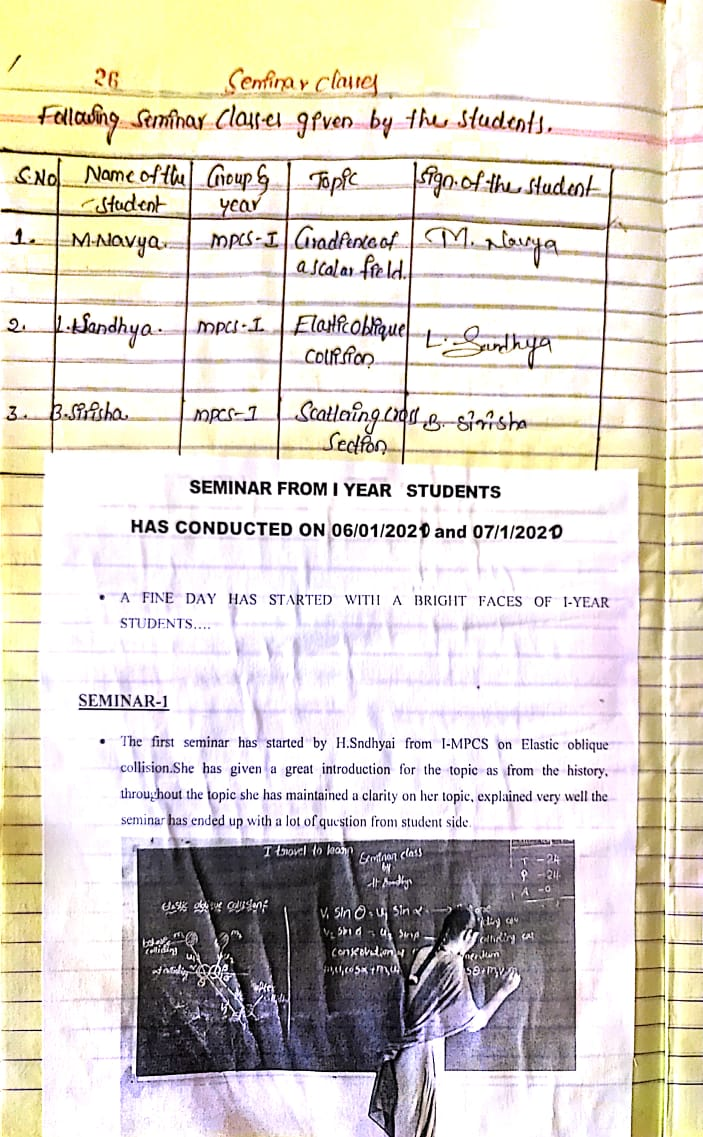 26 Seminar classes
Following Seminar Classes given by the students.
S.No Name of the Student Group & year Topic Sign. of the student
1. M.Navya. MPCS-I Gradience of a scalar field. M. Navya
2. Sandhya. MPCS-I Elastic oblique collision L. Sandhya
3. B.Sirisha MPCS-I Scattering cross Section B. Sirisha
SEMINAR FROM I YEAR STUDENTS
HAS CONDUCTED ON 06/01/2020 and 07/1/2020
• A FINE DAY HAS STARTED WITH A BRIGHT FACES OF I-YEAR
STUDENTS....
SEMINAR-1
• The first seminar has started by H.Sndhyai from I-MPCS on Elastic oblique
collision.She has given a great introduction for the topic as from the history,
throughout the topic she has maintained a clarity on her topic, explained very well the
seminar has ended up with a lot of question from student side.
I travel to learn
Seminar class
by
T - 24
P - 24
A - 0
Elastic oblique collision:
V₁ Sin θ = u₁ Sin α
colliding